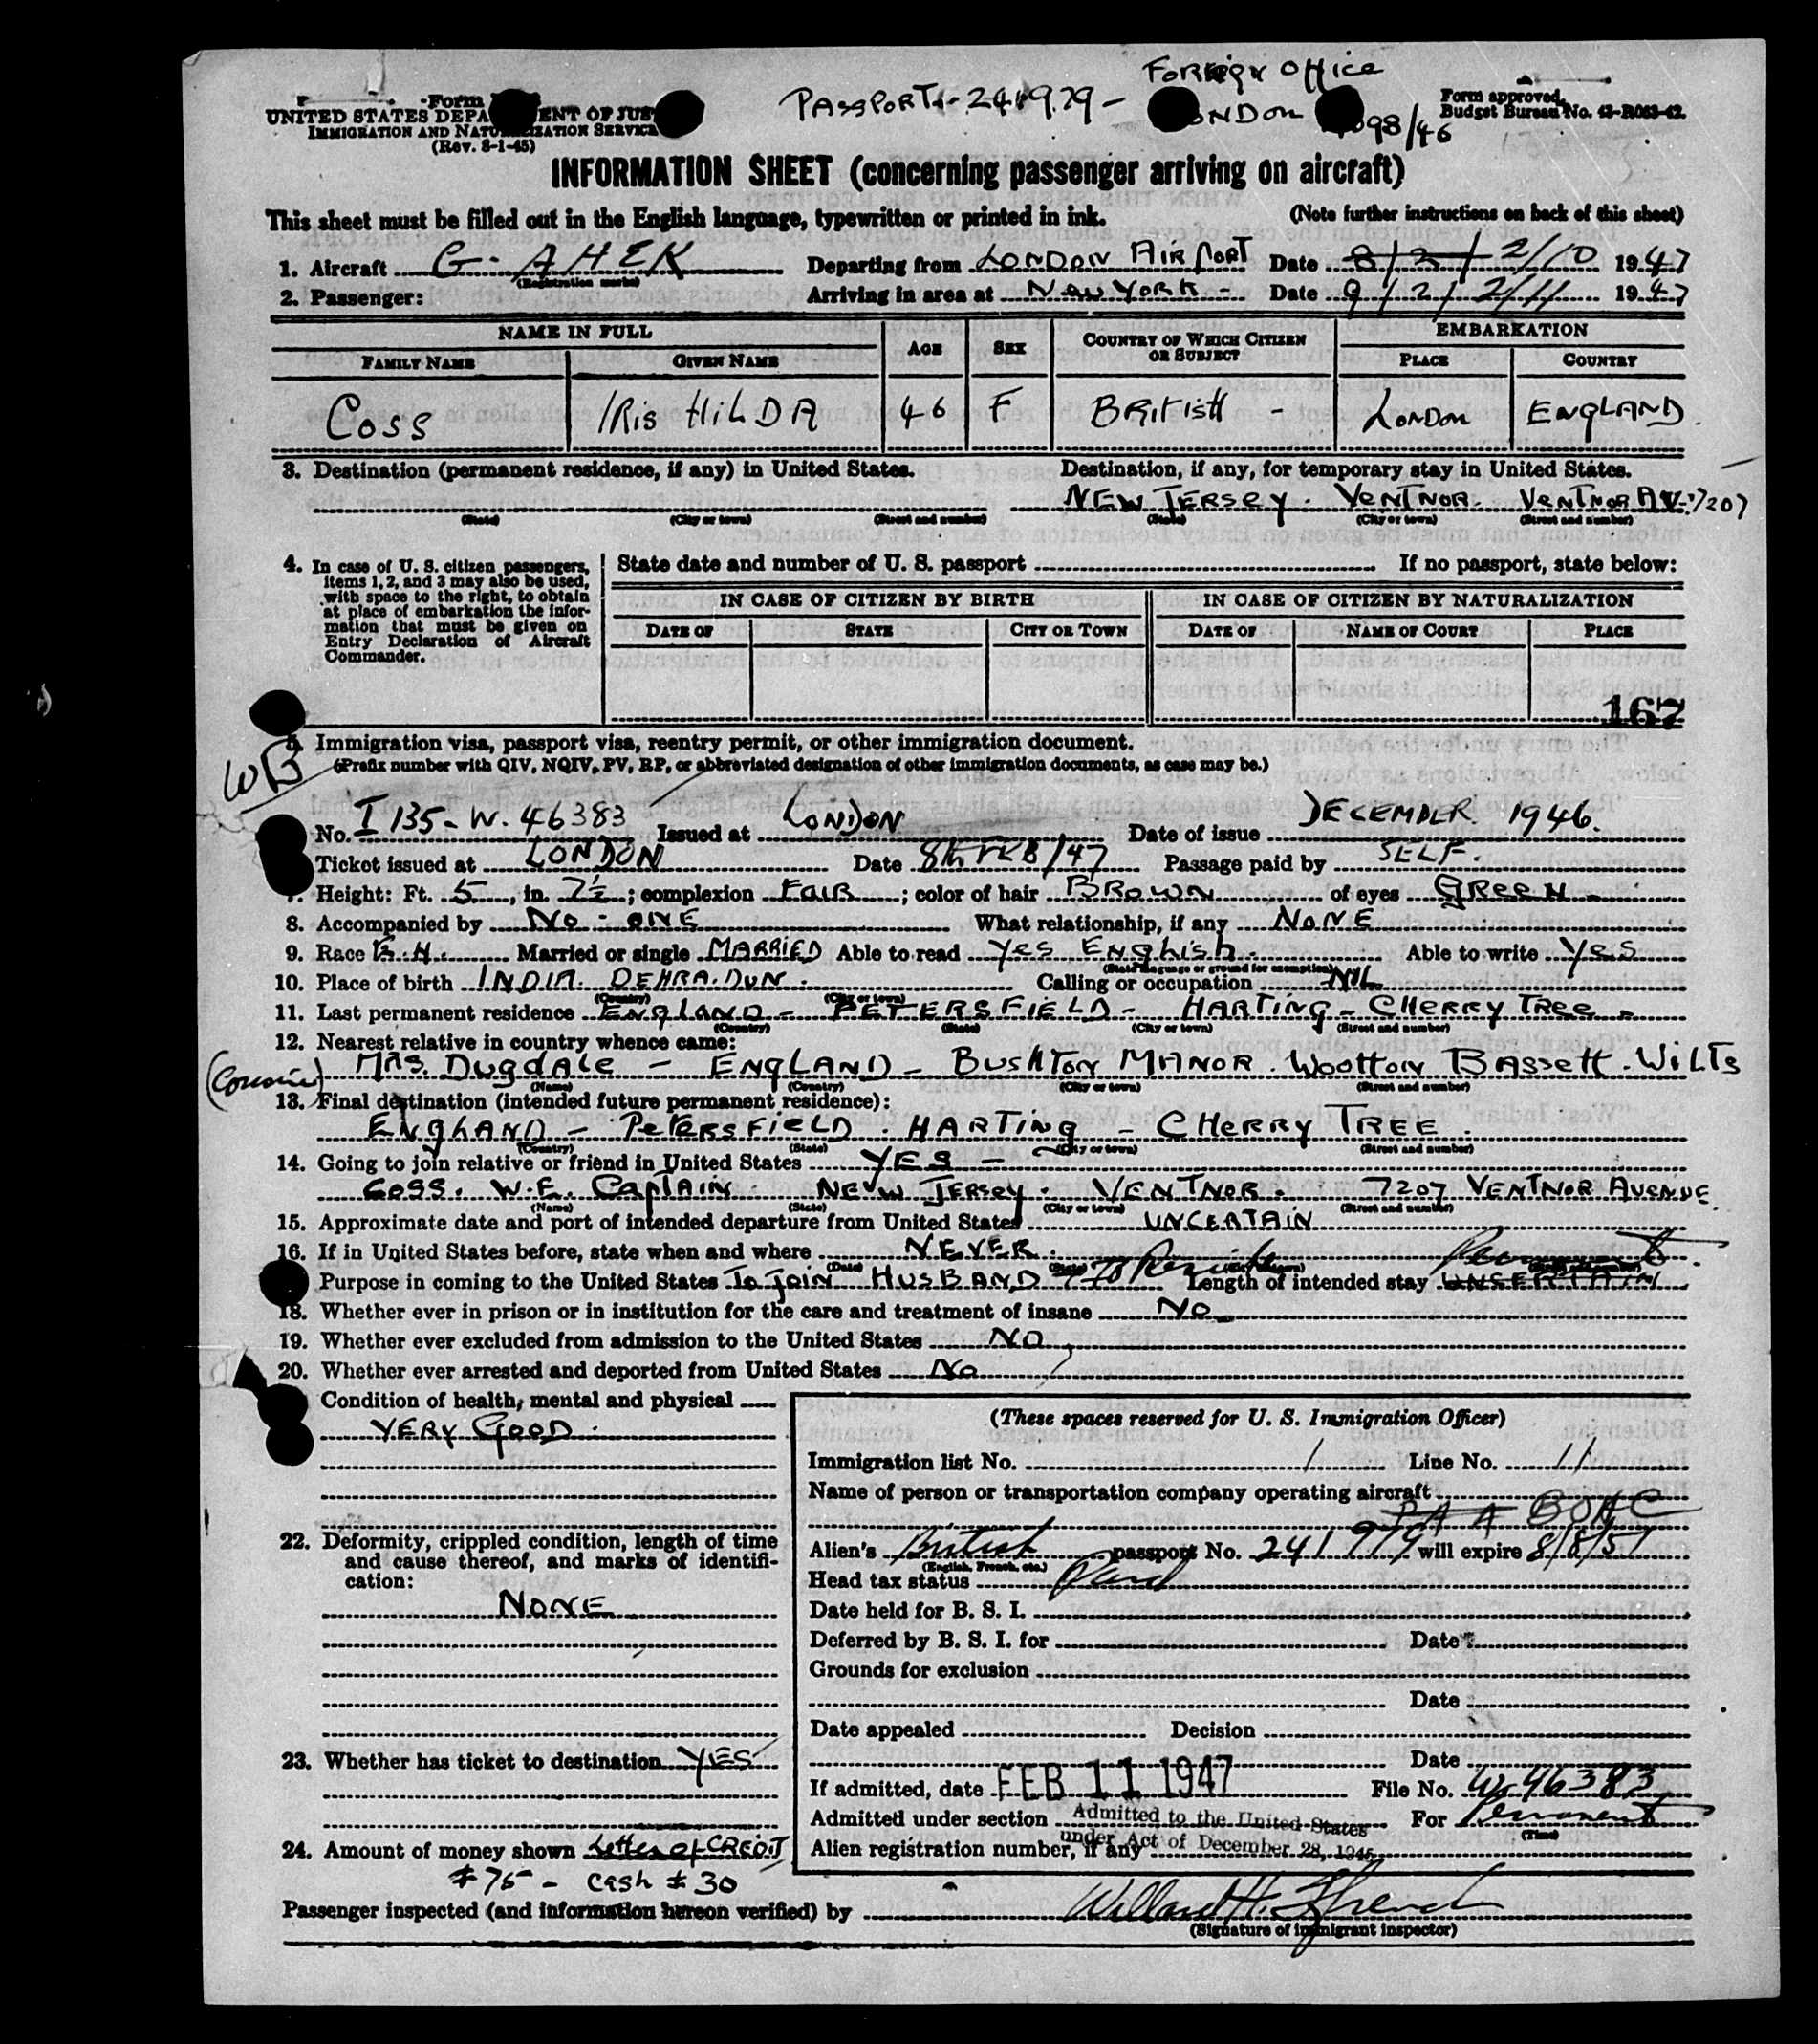 Foreign Office
PASSPORT - 241979 - LONDON 98/46
Form
UNITED STATES DEPA ENT OF JUS
IMMIGRATION AND NATU IZATION SERVICE
(Rev. 8-1-45)
Form approved.
Budget Bureau No. 43-R063-42.
INFORMATION SHEET (concerning passenger arriving on aircraft)
This sheet must be filled out in the English language, typewritten or printed in ink. (Note further instructions on back of this sheet)
1. Aircraft G-AHEK Departing from LONDON AIRPORT Date 8/2/ 2/10 1947
(Registration marks)
2. Passenger: Arriving in area at NEW YORK - Date 9/2/ 2/11 1947
NAME IN FULL AGE SEX COUNTRY OF WHICH CITIZEN OR SUBJECT EMBARKATION
FAMILY NAME GIVEN NAME PLACE COUNTRY
COSS IRIS HILDA 46 F BRITISH - LONDON ENGLAND
3. Destination (permanent residence, if any) in United States. Destination, if any, for temporary stay in United States.
NEW JERSEY. VENTNOR. VENTNOR AV. 7207
(State) (City or town) (Street and number) (State) (City or town) (Street and number)
4. In case of U. S. citizen passengers, items 1, 2, and 3 may also be used, with space to the right, to obtain at place of embarkation the information that must be given on Entry Declaration of Aircraft Commander.
State date and number of U. S. passport If no passport, state below:
IN CASE OF CITIZEN BY BIRTH IN CASE OF CITIZEN BY NATURALIZATION
DATE OF STATE CITY OR TOWN DATE OF NAME OF COURT PLACE
167
WB
5. Immigration visa, passport visa, reentry permit, or other immigration document.
(Prefix number with QIV, NQIV, PV, RP, or abbreviated designation of other immigration documents, as case may be.)
No. I 135-W. 46383 Issued at LONDON Date of issue DECEMBER. 1946.
Ticket issued at LONDON Date 8th FEB/47 Passage paid by SELF.
7. Height: Ft. 5, in. 7½; complexion FAIR; color of hair BROWN of eyes GREEN
8. Accompanied by NO-ONE What relationship, if any NONE
9. Race Married or single MARRIED Able to read YES ENGLISH. Able to write YES
(State language or ground for exemption)
10. Place of birth INDIA. DEHRA.DUN. Calling or occupation NIL
(Country) (City or town)
11. Last permanent residence ENGLAND - PETERSFIELD - HARTING - CHERRY TREE.
(Country) (State) (City or town) (Street and number)
12. Nearest relative in country whence came:
(Cousin) MRS. DUGDALE - ENGLAND - BUSHTON MANOR. WOOTTON BASSETT. WILTS
(Name) (Country) (City or town) (Street and number)
13. Final destination (intended future permanent residence):
ENGLAND - PETERSFIELD. HARTING - CHERRY TREE.
(Country) (State) (City or town) (Street and number)
14. Going to join relative or friend in United States YES -
COSS. W.E. CAPTAIN. NEW JERSEY. VENTNOR. 7207 VENTNOR AVENUE
(Name) (State) (City or town) (Street and number)
15. Approximate date and port of intended departure from United States UNCERTAIN
16. If in United States before, state when and where NEVER.
(Date) (State) (City or town) (Street and number)
Purpose in coming to the United States TO JOIN HUSBAND To Reside Length of intended stay UNCERTAIN Permanent
18. Whether ever in prison or in institution for the care and treatment of insane NO
19. Whether ever excluded from admission to the United States NO
20. Whether ever arrested and deported from United States NO
Condition of health, mental and physical
VERY GOOD.
22. Deformity, crippled condition, length of time and cause thereof, and marks of identification:
NONE
23. Whether has ticket to destination YES
24. Amount of money shown Letter of CREDIT
$75 - cash $30
(These spaces reserved for U. S. Immigration Officer)
Immigration list No. 1 Line No. 11
Name of person or transportation company operating aircraft
PAA BOAC
Alien's British passport No. 241979 will expire 8/8/51
(English, French, etc.)
Head tax status Paid
Date held for B. S. I.
Deferred by B. S. I. for Date
Grounds for exclusion
Date
Date appealed Decision
Date
If admitted, date FEB 11 1947 File No. W-46383
Admitted under section Admitted to the United States For Permanent
(Time)
under Act of December 28, 1945
Alien registration number, if any
Passenger inspected (and information hereon verified) by Willard H.
(Signature of immigrant inspector)